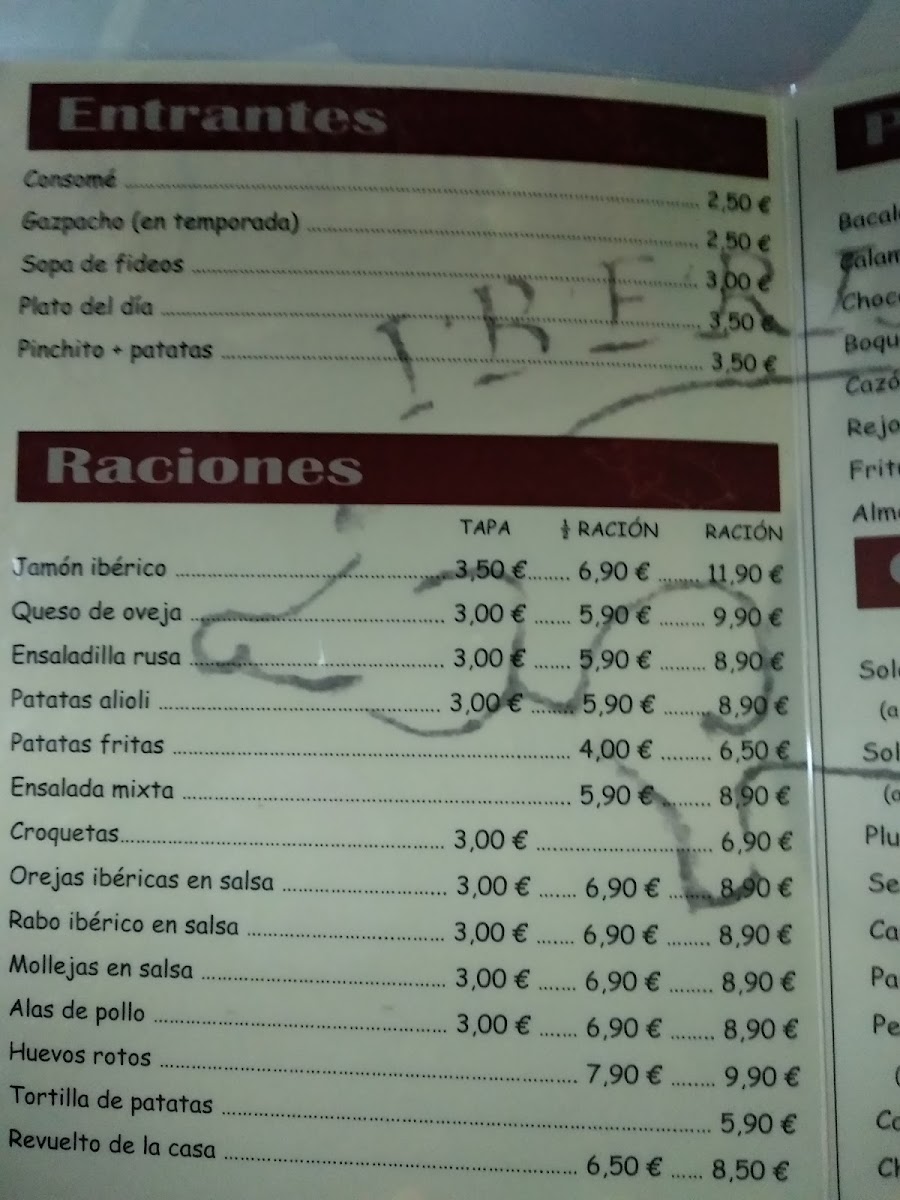 Entrantes
Consomé 2,50 €
Gazpacho (en temporada) 2,50 €
Sopa de fideos 3,00 €
Plato del día 3,50 €
Pinchito + patatas 3,50 €
Raciones
TAPA ½ RACIÓN RACIÓN
Jamón ibérico 3,50 € 6,90 € 11,90 €
Queso de oveja 3,00 € 5,90 € 9,90 €
Ensaladilla rusa 3,00 € 5,90 € 8,90 €
Patatas alioli 3,00 € 5,90 € 8,90 €
Patatas fritas 4,00 € 6,50 €
Ensalada mixta 5,90 € 8,90 €
Croquetas 3,00 € 6,90 €
Orejas ibéricas en salsa 3,00 € 6,90 € 8,90 €
Rabo ibérico en salsa 3,00 € 6,90 € 8,90 €
Mollejas en salsa 3,00 € 6,90 € 8,90 €
Alas de pollo 3,00 € 6,90 € 8,90 €
Huevos rotos 7,90 € 9,90 €
Tortilla de patatas 5,90 €
Revuelto de la casa 6,50 € 8,50 €